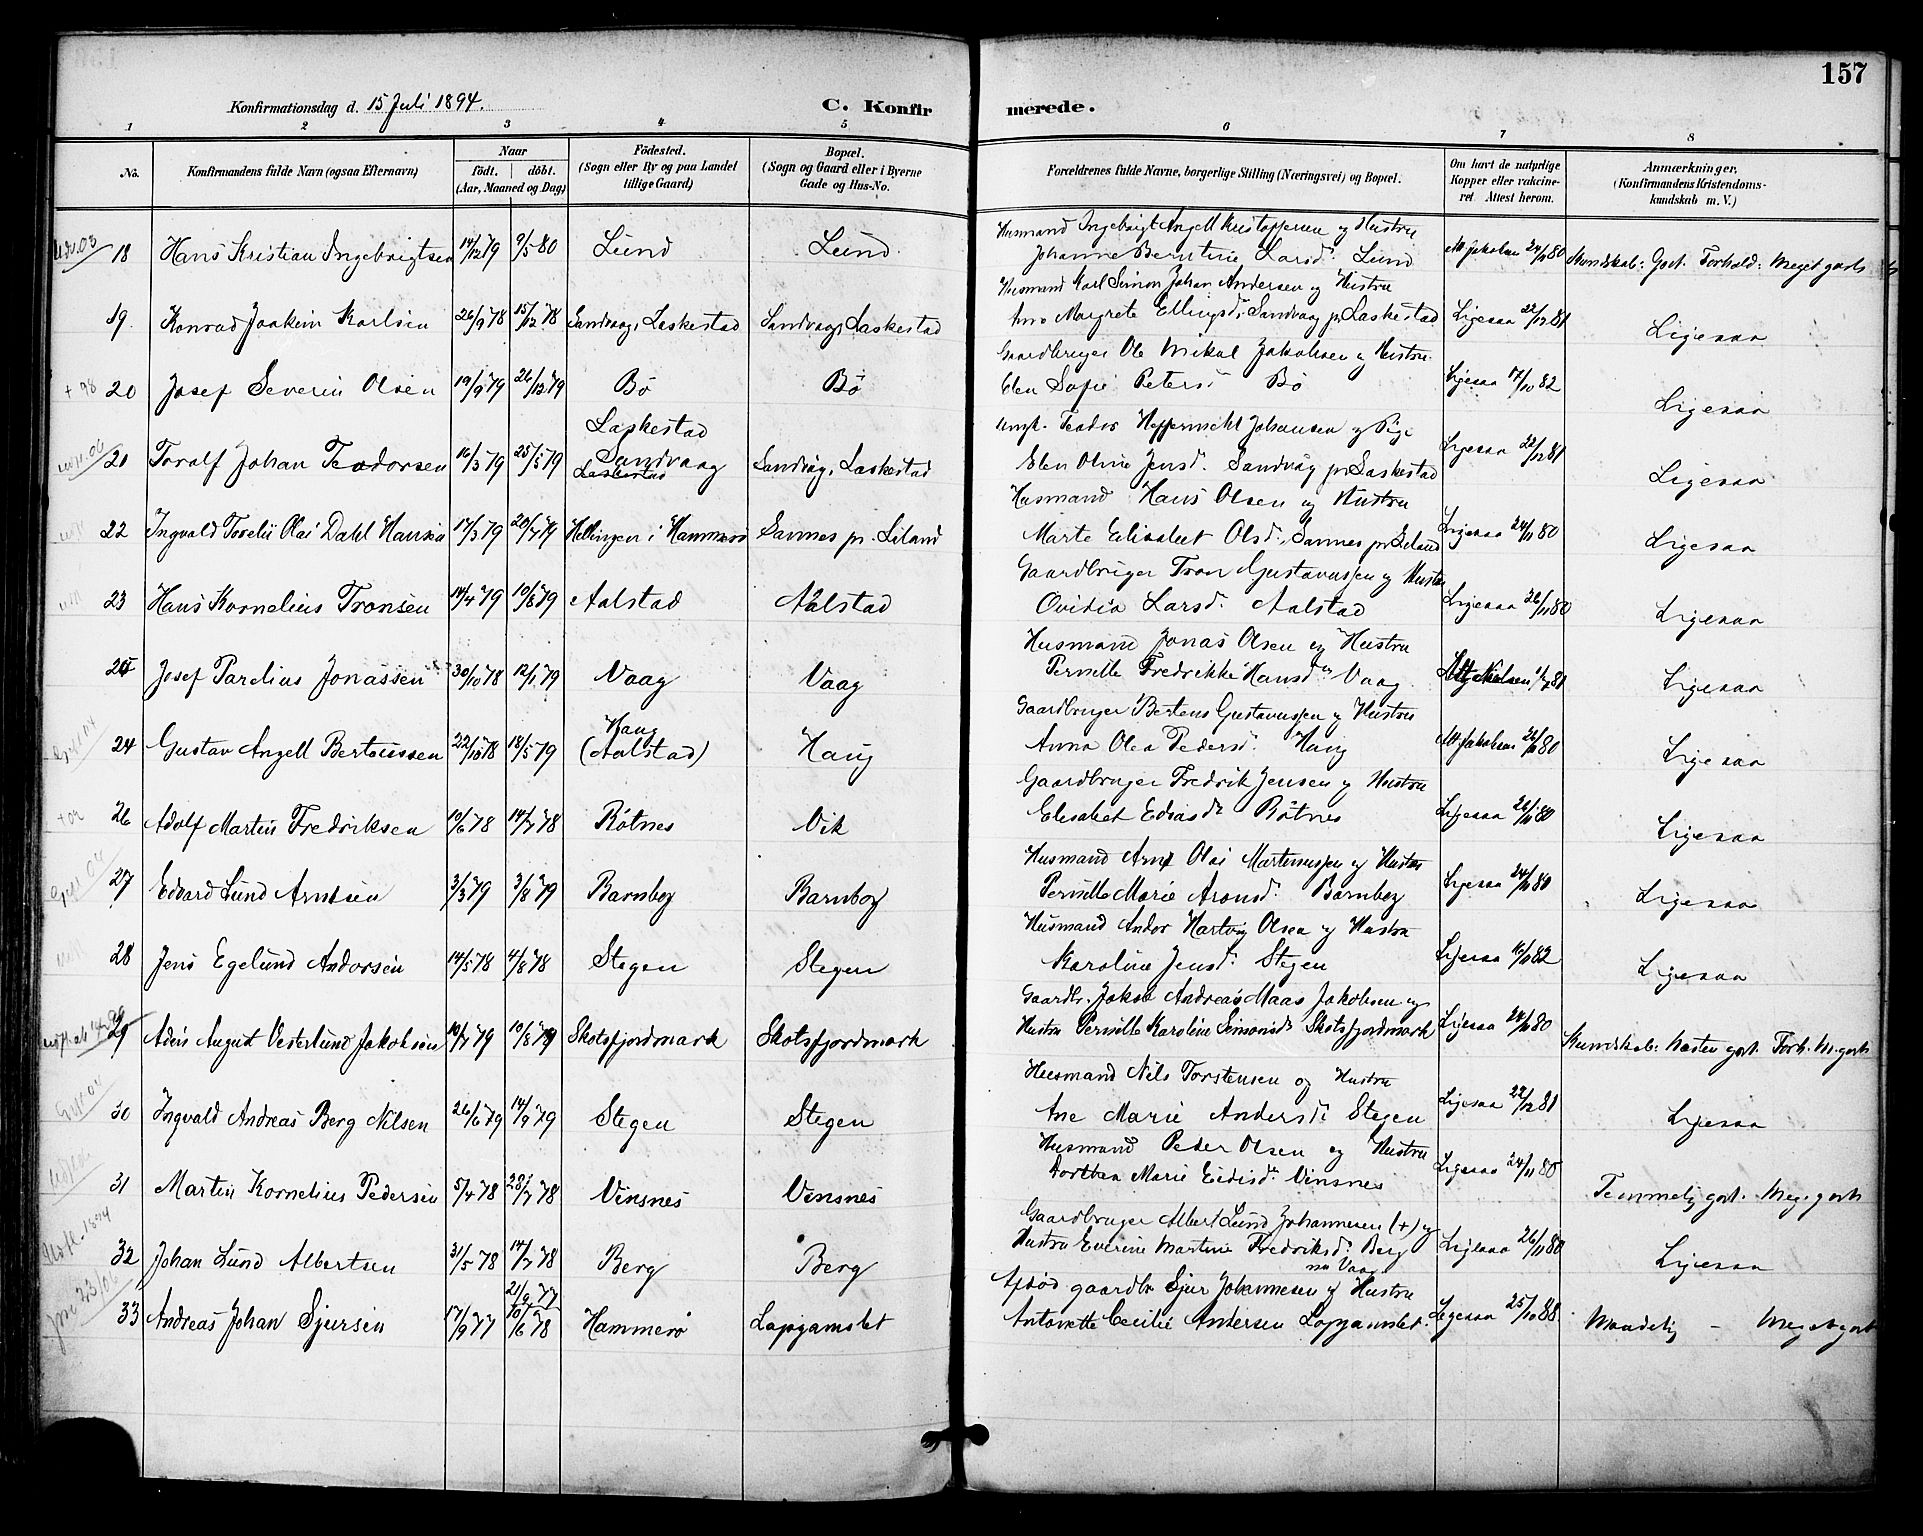 157
Konfirmationsdag d. 15 Juli 1894.
C. Konfirmerede.
1 2 3 4 5 6 7 8
No.
Konfirmandens fulde Navn (ogsaa Efternavn)
Naar
födt. döbt.
(Aar, Maaned og Dag)
Födested.
(Sogn eller By og paa Landet tillige Gaard)
Bopæl.
(Sogn og Gaard eller i Byerne Gade og Hus-No.
Forældrenes fulde Navne, borgerlige Stilling (Næringsvei) og Bopæl.
Om havt de naturlige Kopper eller vakcineret Attest herom.
Anmærkninger,
(Konfirmandens Kristendomskundskab m. V.)
18 Hans Kristian Ingebrigtsen 14/12 79 9/5 80 Lund Lund
Husmand Ingebrigt Angell Kristoffersen og Hustru
Johanne Berntine Larsd. Lund
M Jakobsen 24/11 80 Kundskab: Godt. Forhold: Meget godt
19. Konrad Joakim Karlsen 26/9 78 15/12 78 Sandvaag, Laskestad Sandvaag, Laskestad
Husmand Karl Simon Johan Andersen og Hustru
Ane Margrete Ellingsd. Sandvaag pr Laskestad
Ligesaa 22/12 81 Ligesaa
+ 98 20 Josef Severin Olsen 19/9 79 26/12 79 Bö Bö
Gaardbruger Ole Mikal Jakobsen og Hustru
Elen Sofie Petersd. Bö
Ligesaa 17/10 82 Ligesaa
21 Toralf Johan Teodorsen 16/3 79 25/5 79 Laskestad Sandvaag Laskestad Sandvåg, Laskestad
Ungk. Teodor Johansen og Pige
Elen Oline Jensd. Sandvåg pr Laskestad
Ligesaa 22/12 81 Ligesaa
22 Ingvald Olai Dahl Hansen 17/3 79 20/7 79 Hellingen i Hammerö Sannes pr. Liland
Husmand Hans Olsen og Hustru
Marte Elisabet Olsd. Sannes pr Leland
Ligesaa 24/11 80 Ligesaa
23 Hans Kornelius Tronsen 14/4 79 10/8 79 Aalstad Aalstad
Gaardbruger Tron Gustavussen og Hustru
Ovidia Larsd. Aalstad
Ligesaa 26/11 80 Ligesaa
25 Josef Parelius Jonassen 30/10 78 12/1 79 Vaag Vaag
Husmand Jonas Olsen og Hustru
Pernille Fredrikke Hansd. Vaag
Ligesaa
24 Gustav Angell Berteussen 22/10 78 18/5 79 Haug (Aalstad) Haug
Gaardbruger Berteus Gustavussen og Hustru
Anna Olea Pedersd. Haug
M Jakobsen 26/11 80 Ligesaa
26 Adolf Martin Fredriksen 10/6 78 14/7 78 Rötnes Vik
Gaardbruger Fredrik Jensen og Hustru
Elisabet Edisd. Rötnes
Ligesaa 26/11 80 Ligesaa
27 Edvard Lund Arntsen 3/3 79 3/8 79 Barnboy Barnboy
Husmand Arnt Olai Martinussen og Hustru
Pernille Marie Aronsd. Barnboy
Ligesaa 24/11 80 Ligesaa
28 Jens Egelund Andorsen 14/5 78 4/8 78 Stegen Stegen
Husmand Andor Hartvig Olsen og Hustru
Karoline Jensd. Stegen
Ligesaa 16/11 82 Ligesaa
29 August Vesterlund Jakobsen 10/7 79 10/8 79 Skotsfjordmark Skotsfjordmark
Gaardbr. Jakob Andreas Maas Jakobsen og
Hustru Pernille Karoline Simonsd. Skotsfjordmark
Ligesaa 24/11 80 Kundskab: Næsten godt. Forh. M. godt
30 Ingvald Andreas Berg Nilsen 26/6 79 14/9 79 Stegen Stegen
Husmand Nils Torstensen og Hustru
Ane Marie Andersd. Stegen
Ligesaa 22/12 81 Ligesaa
31 Martin Kornelius Pedersen 5/4 78 28/7 78 Vinsnes Vinsnes
Husmand Peder Olsen og Hustru
Dorthea Marie Eidisd. Vinsnes
Ligesaa 24/11 80 Temmelig godt. Meg. godt
32 Johan Lund Albertsen 31/5 78 14/7 78 Berg Berg
Gaardbruger Albert Lund Johannesen (+) og
Hustru Everine Martine Fredriksd. Berg
nu Vaag
Ligesaa 26/11 80 Ligesaa
33 Andreas Johan Sjursen 17/9 77 21/9 77 10/6 78 Hammerö Lapgamslet
Afdöd gaardbr Sjur Johannesen og Hustru
Antonette Cecilie Andersen Lapgamslet.
Ligesaa 25/10 88. Maadelig - Meget godt